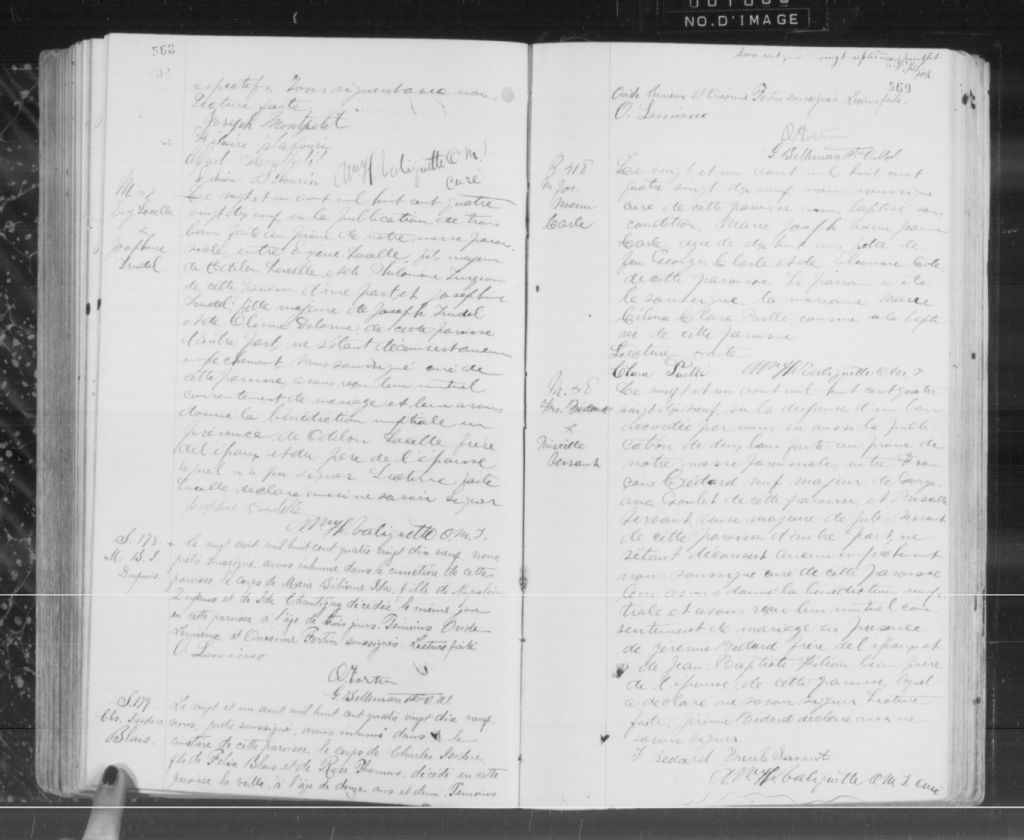 NO. D'IMAGE
568
respectifs. Tous signent avec nous,
Lecture faite
Joseph Montpetit
Hilaire
curé
M. 57
Eug Lacelle
&
Josephine
Trudel
Le vingt et un aout mil huit cent quatre
vingt dix neuf vu la publication de trois
bans faite au prone de notre messe parois
siale, entre Eugène Lacelle, fils majeur
de Odilon Lacelle et de Philomène
de cette paroisse d'une part, et Josephine
Trudel fille majeure de Joseph Trudel
et de de cette paroisse
d'autre part, ne s'étant découvert aucun
empêchement nous soussigné curé de
cette paroisse, avons reçu leur mutuel
consentement de mariage et leur avons
donné la bénédiction nuptiale en
présence de Odilon Lacelle frère
de l'époux et du père de l'épouse
lequel n'a pu signer Lecture faite
Lacelle declare aussi ne savoir signer
Josephine
O M I.
S. 178
M. B. I.
Dupuis.
Le vingt aout mil huit cent quatre vingt dix neuf nous
prêtre soussigné, avons inhumé dans le cimetière de cette
paroisse le corps de Marie Bibiane Ida, fille de Napoléon
Dupuis et de Ida Chantigny décédée le même jour
en cette paroisse, à l'âge de trois jours. Témoins Ovide
Lemieux et Onesime Fortin soussignés. Lecture faite
O. Lemieux
O Fortin
S. 179.
Chs. Isidore
Blais.
Le vingt et un aout mil huit cent quatre vingt dix neuf,
nous, prêtre soussigné, avons inhumé dans le
cimetière de cette paroisse le corps de Charles Isidore,
fils de Félix Blais et de Rose Thomas, décédé en cette
paroisse la veille, à l'âge de douze ans et demi. Témoins
569
Ovide Lemieux et Onesime Fortin soussignés. Lecture faite.
O. Lemieux
O Fortin
B. 418
M. Jos.
Carle
Le vingt et un aout mil huit cent
quatre vingt dix neuf nous soussigné
curé de cette paroisse avons baptisé sous
condition, Marie Joseph
Carle agée de dix huit ans, fille de
feu Georges Carle et de Eleonore
de cette paroisse. Le parrain a été
le soussigné, la marraine Marie
Célina Clara cousine de la bapti
sée de cette paroisse
Lecture faite
Clara O M I
M. 58
Frs. Bédard
&
Priscille
Servant
Le vingt et un aout mil huit cent quatre
vingt dix neuf vu la dispense d'un ban
accordée par nous vu aussi la publi
cation de deux bans faite au prone de
notre messe paroissiale, entre Fran
çois Bédard veuf majeur de Georgi
ana Goulet de cette paroisse, et Priscille
Servant veuve majeure de Jules Servant
de cette paroisse d'autre part, ne
s'étant découvert aucun empêchement
nous soussigné curé de cette paroisse
leur avons donné la bénédiction nup
tiale et avons reçu leur mutuel con
sentement de mariage en présence
de Jérémie Bédard frère de l'époux et
de Jean Baptiste beau frère
de l'épouse, de cette paroisse, lequel
a déclaré ne savoir signer. Lecture
faite. Jérémie Bédard déclare aussi ne
savoir signer
F Bedard
O M I. curé